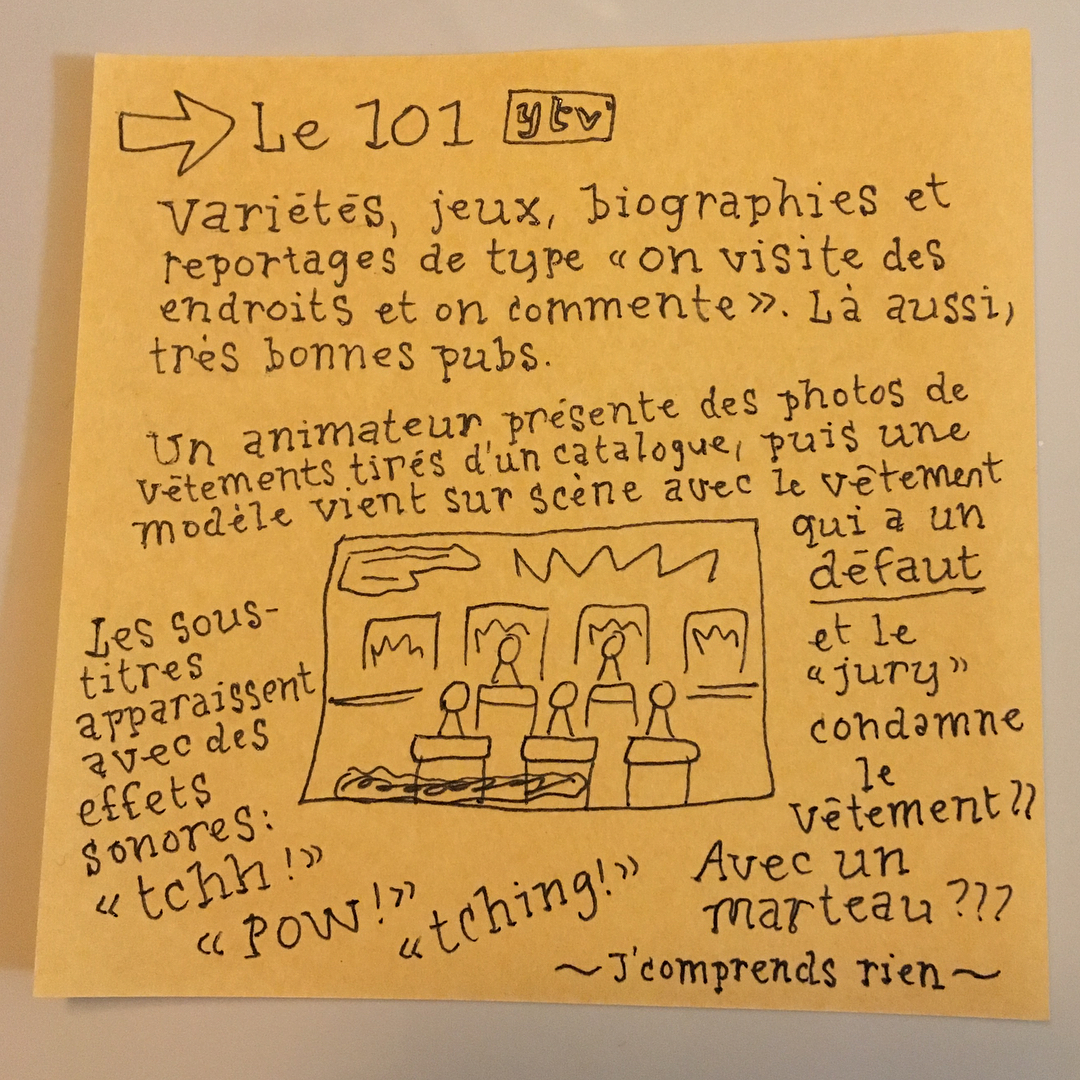 Le 101 ytv
Variétés, jeux, biographies et
reportages de type «on visite des
endroits et on commente». Là aussi,
très bonnes pubs.
Un animateur présente des photos de
vêtements tirés d'un catalogue, puis une
modèle vient sur scène avec le vêtement
qui a un
défaut
et le
«jury»
condamne
le
vêtement??
Avec un
marteau???
~J'comprends rien~
Les sous-
titres
apparaissent
avec des
effets
sonores:
«tchh!»
«POW!»
«tching!»